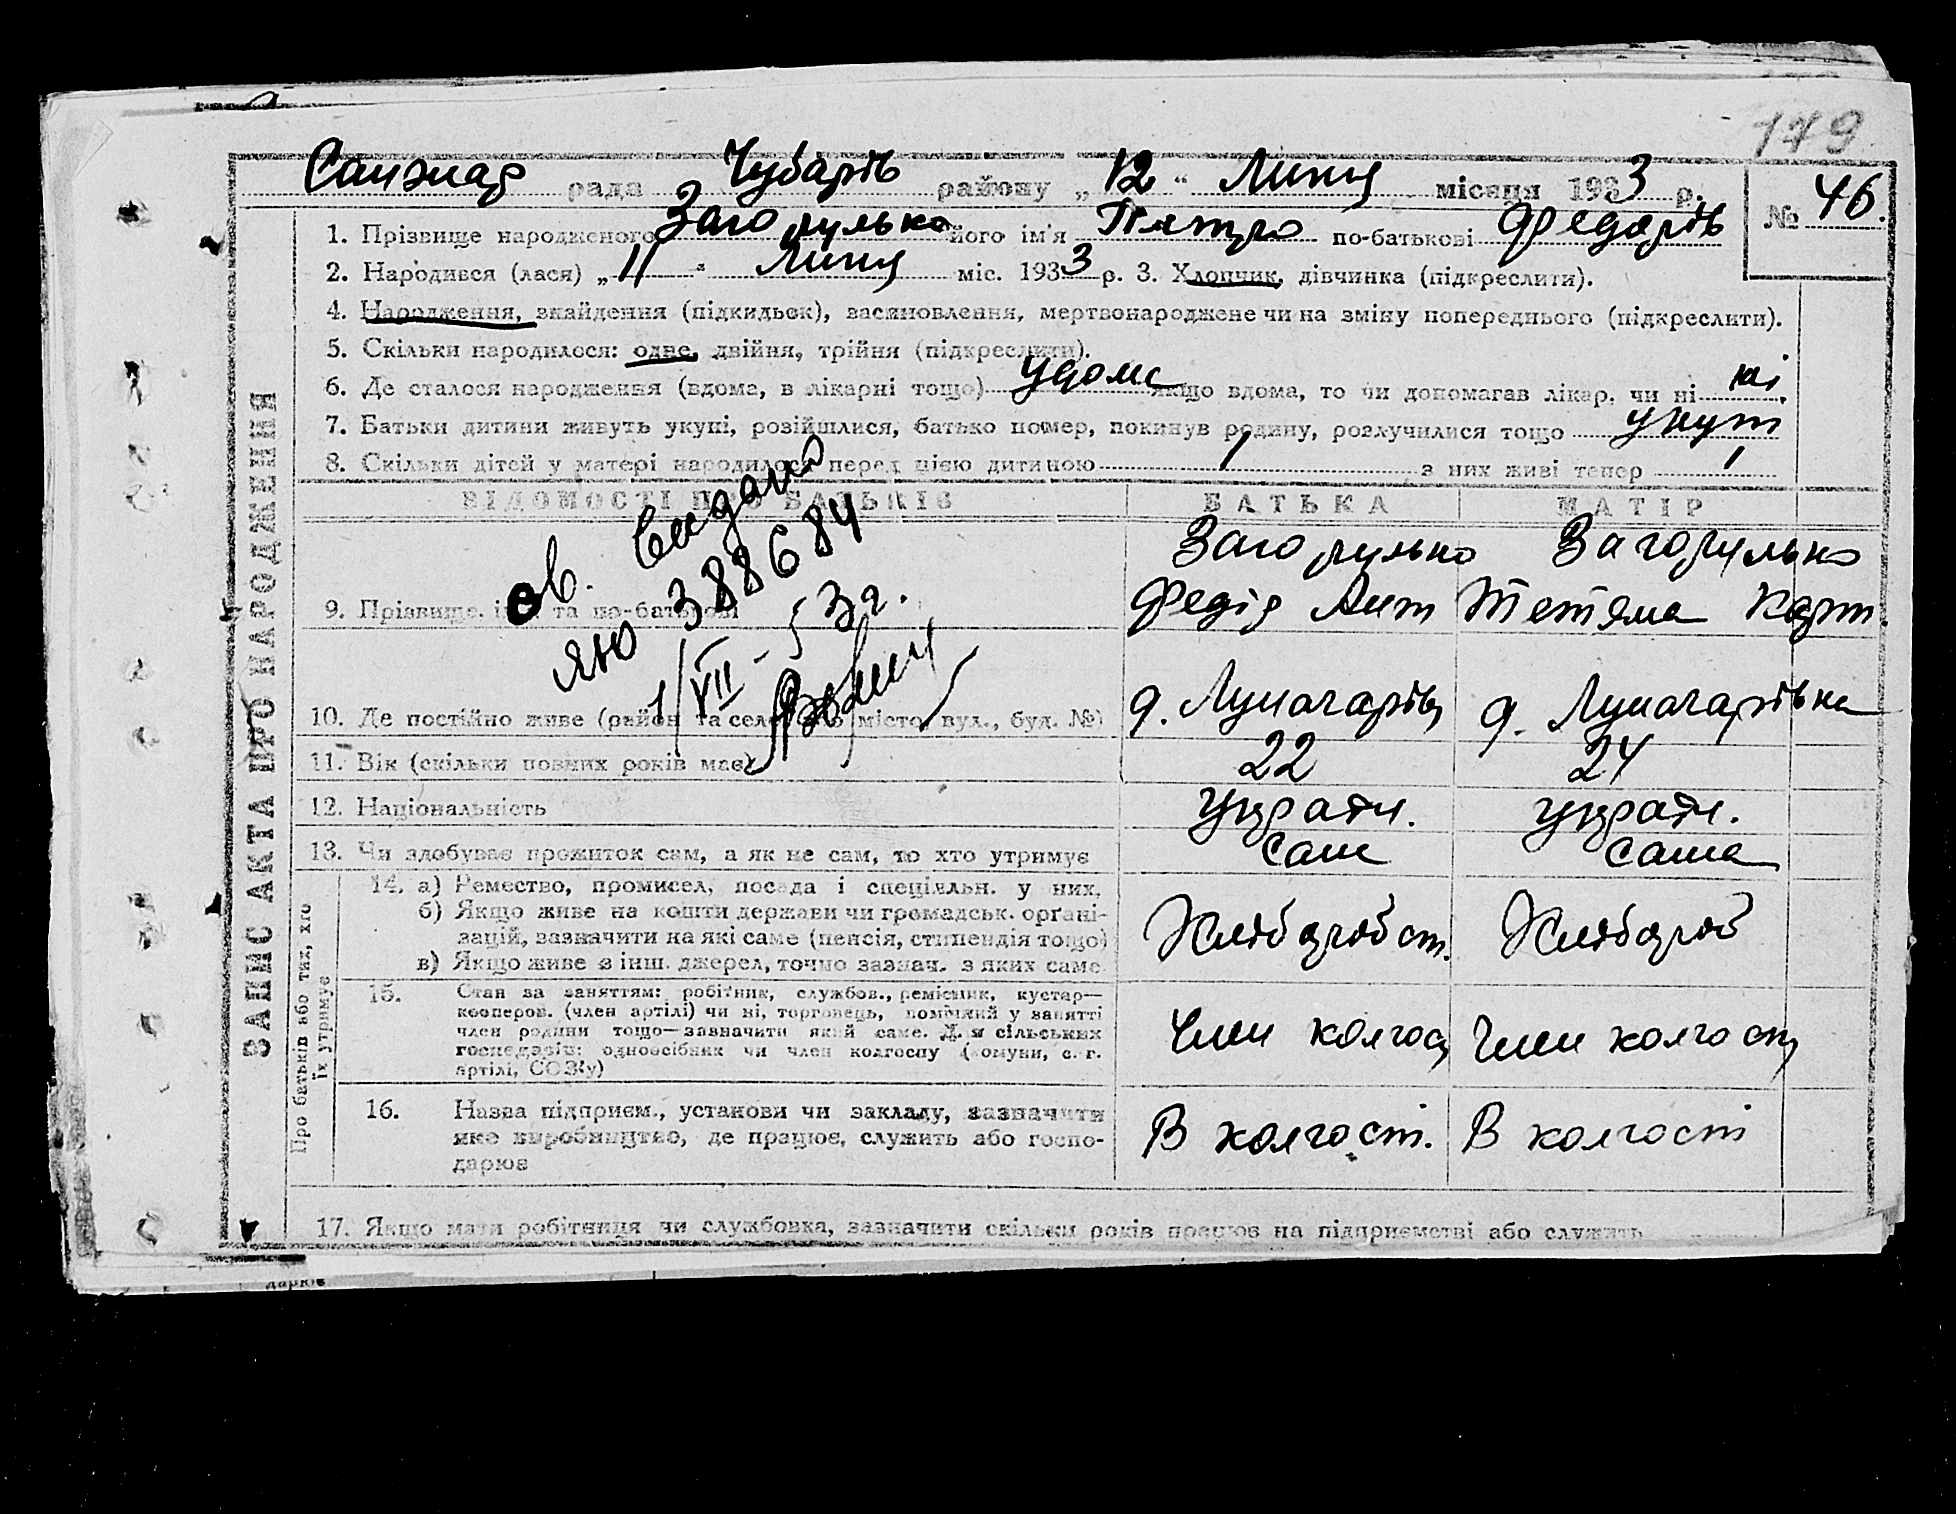 179
Санжар рада Чубарів району „ 12 “ Липця місяця 1933 р.
№ 46.
1. Прізвище народженого Загорулько його ім'я Пятро по-батькові Федарів
2. Народився (лася) „ 11 “ Липця міс. 1933 р. 3. Хлопчик, дівчинка (підкреслити).
4. Народження, знайдення (підкидьок), засиновлення, мертвонароджене чи на зміну попереднього (підкреслити).
5. Скільки народилося: одне, двійня, трійня (підкреслити).
6. Де сталося народження (вдома, в лікарні тощо) удома якщо вдома, то чи допомагав лікар, чи ні ні.
7. Батьки дитини живуть укупі, розійшлися, батько помер, покинув родину, розлучилися тощо укуп
8. Скільки дітей у матері народилося перед цією дитиною 1 з них живі тепер 1
ВІДОМОСТІ ПРО БАТЬКІВ БАТЬКА МАТІР
Загорулько Загорулько
9. Прізвище, ім'я та по-батькові Федір Ант Тетяма Карп.
св. видано
ЯЮ 388684
1/VII-53г.
10. Де постійно живе (район та село або місто, вул., буд. №) д. Луначарівц д. Луначарівка
11. Вік (скільки повних років має) 22 24
12. Національність україн. україн.
13. Чи здобуває прожиток сам, а як не сам, то хто утримує сам сама
14. а) Ремество, промисел, посада і спеціяльн. у них.
б) Якщо живе на кошти держави чи громадськ. орґані-
зацій, зазначити на які саме (пенсія, стипендія тощо) Хлібаробст. Хлібароб
в) Якщо живе з інш. джерел, точно зазнач. з яких саме
15. Стан за заняттям: робітник, службов., ремісник, кустар—
кооперов. (член артілі) чи ні, торговець, помічний у занятті
член родини тощо—зазначити який саме. Для сільських
господарів: одноосібник чи член колгоспу (комуни, с.-г.
артілі, СОЗ'у) Член колгосц Член колгоспу
16. Назва підприєм., установи чи закладу, зазначити
яке виробництво, де працює, служить або госпо-
дарює В колгосп. В колгосп
17. Якщо мати робітниця чи службовка, зазначити скільки років працює на підприємстві або служить
ЗАПИС АКТА ПРО НАРОДЖЕННЯ
Про батьків або тих, хто
їх утримує
дарює